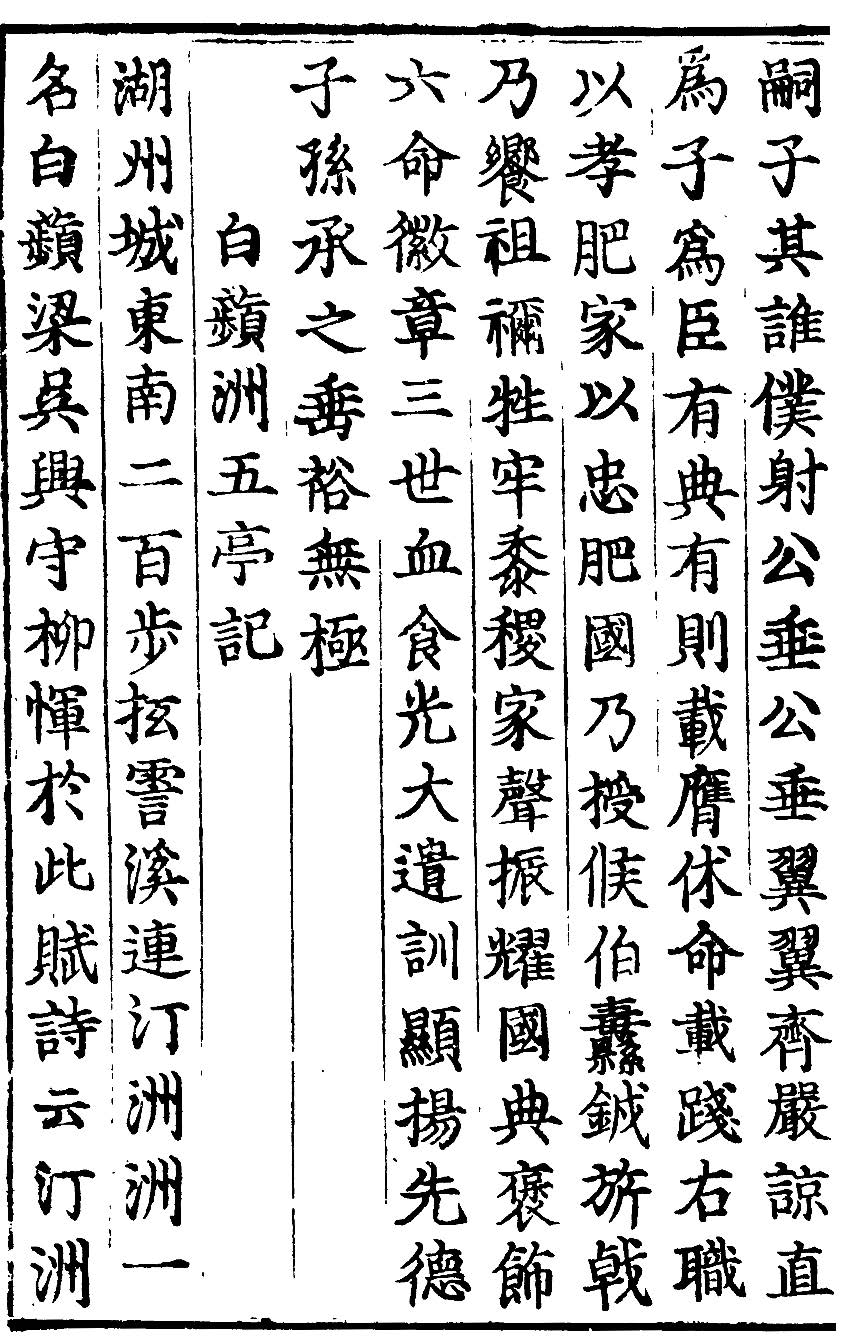 嗣子其誰僕射公垂公垂翼翼齊嚴諒直
爲子爲臣有典有則載膺休命載踐右職
以孝肥家以忠肥國乃授侯伯纛鉞旂戟
乃饗祖禰牲牢黍稷家聲振耀國典褒飾
六命徽章三世血食光大遺訓顯揚先德
子孫承之垂裕無極
白蘋洲五亭記
湖州城東南二百步抵霅溪連汀洲洲一
名白蘋梁吳興守柳惲於此賦詩云汀洲